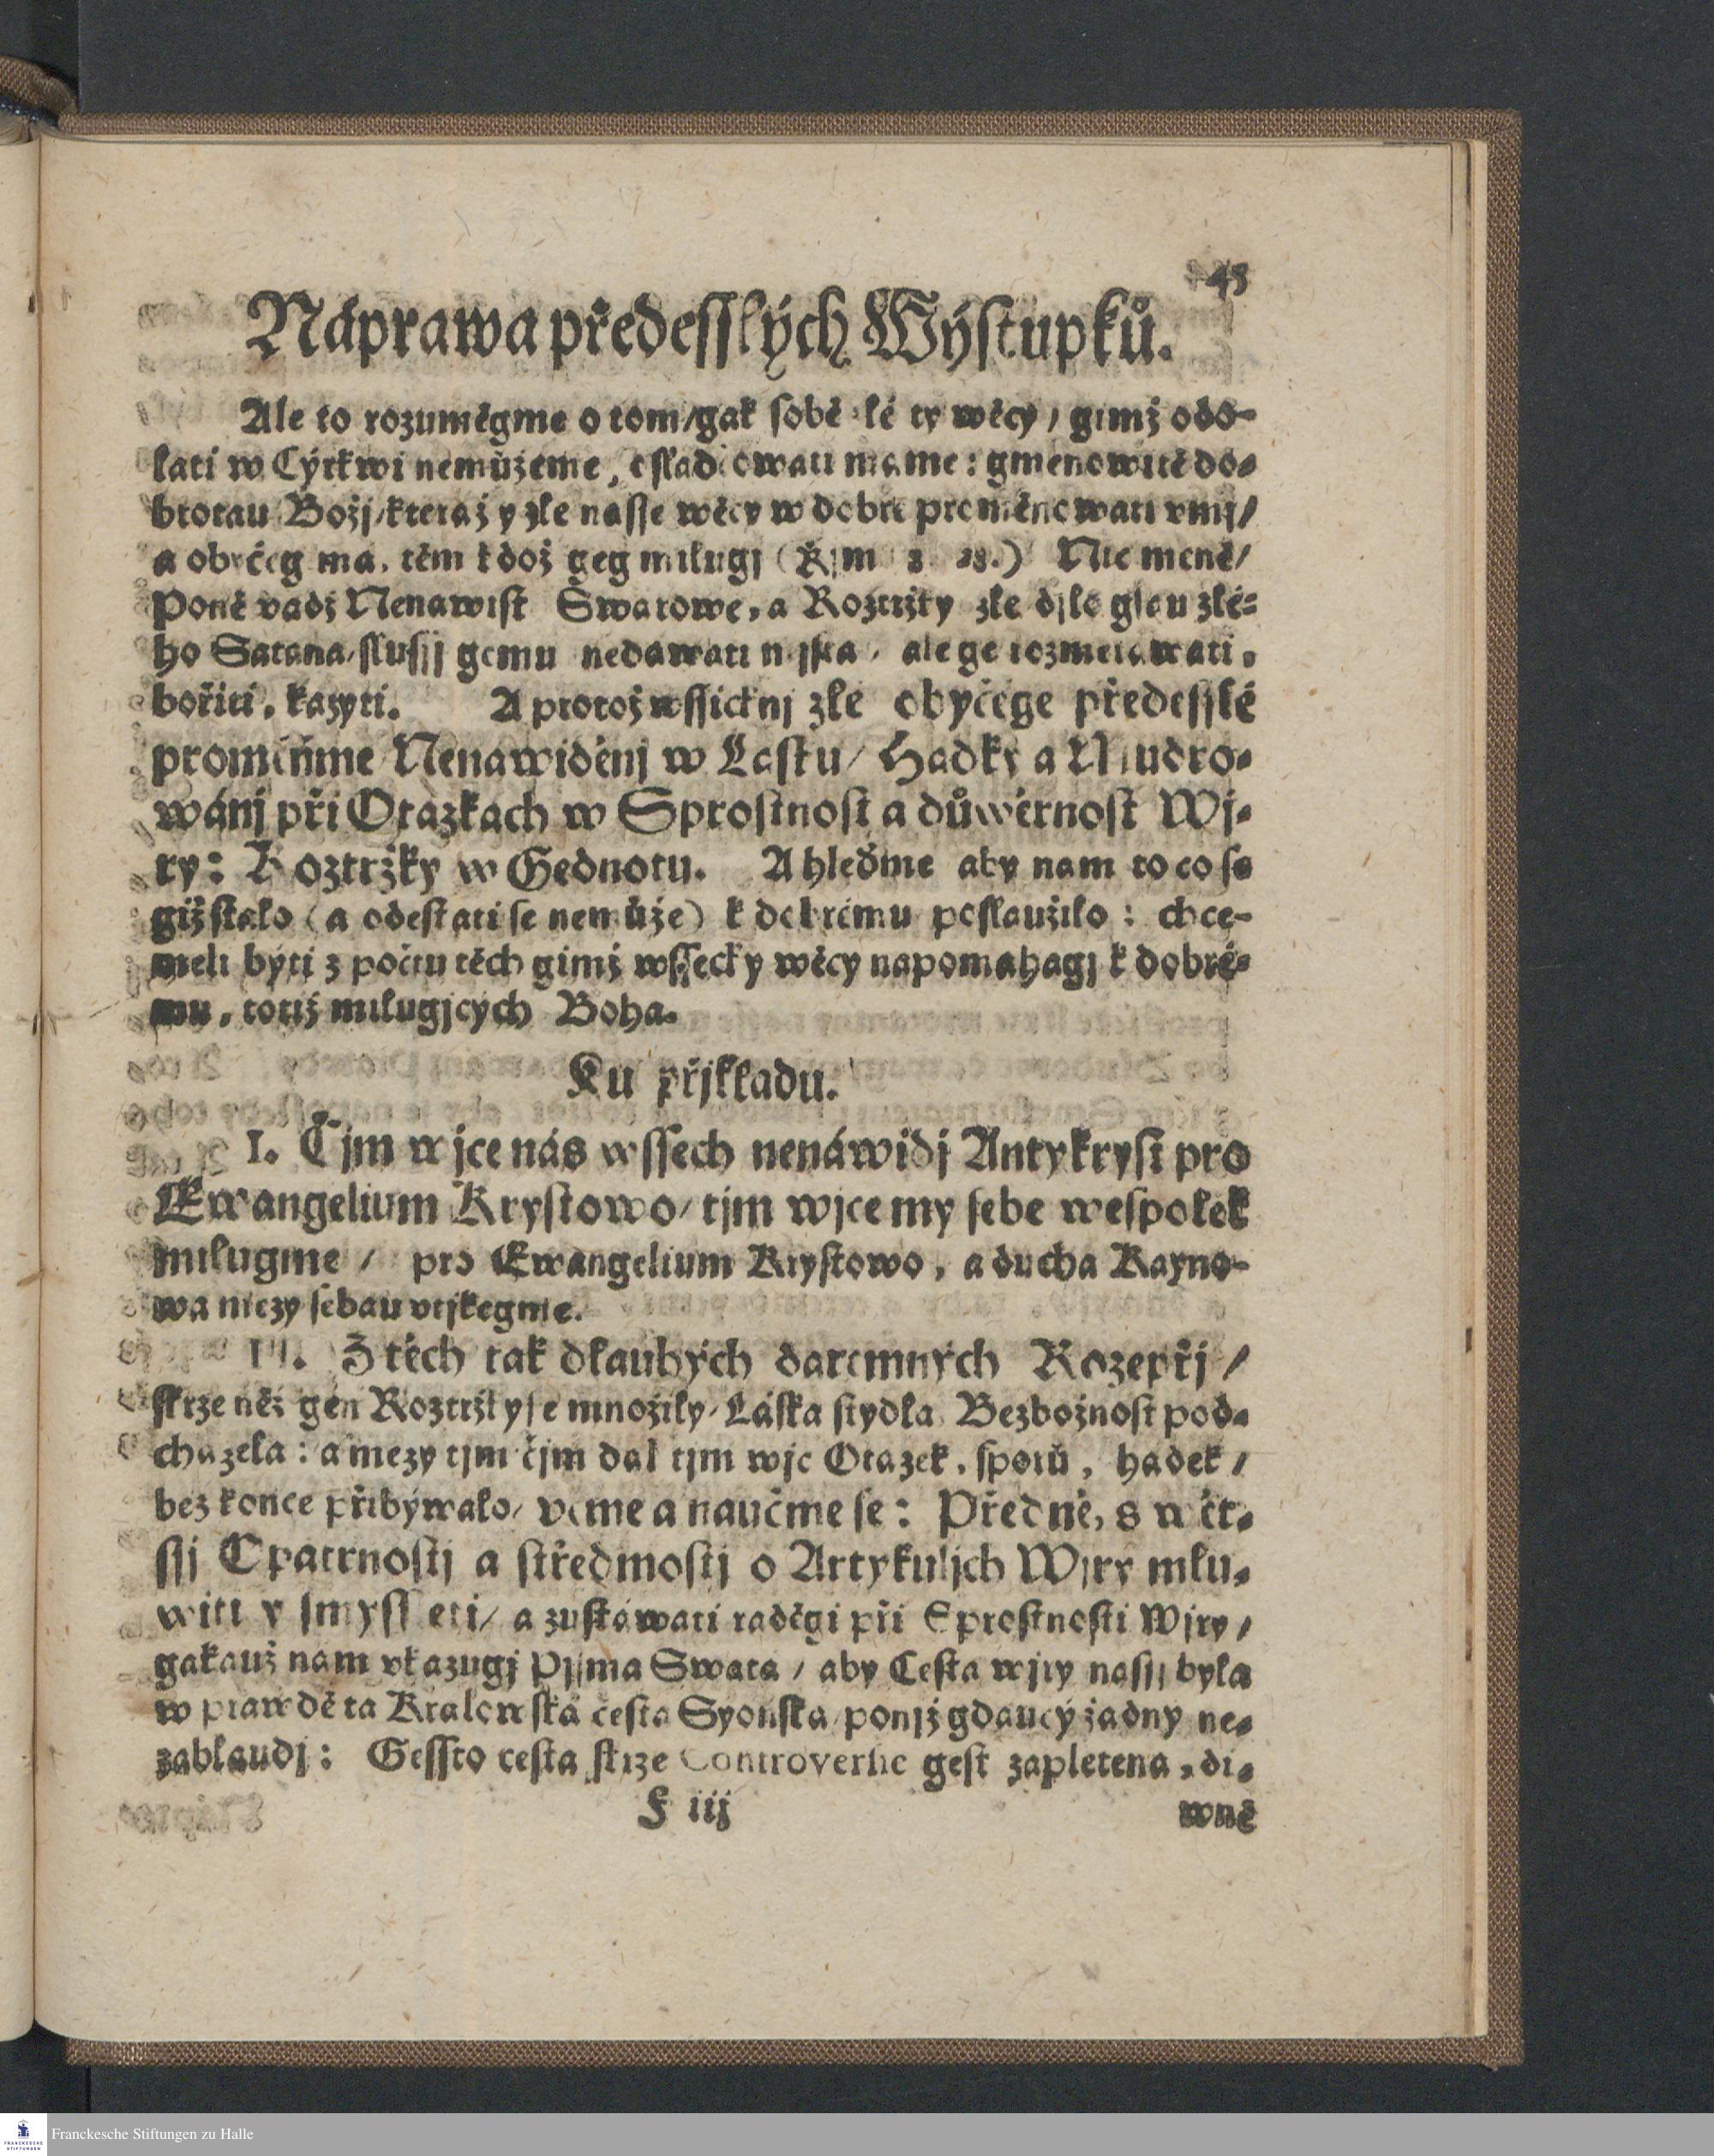 43
Náprawa předesslých Wýstupků.
Ale to rozumégme o tom/gak sobě ty wěcy / gimž odo-
lati w Cýrkwi nemůžeme, osladčowati mame: gmenowitě do-
brotau Božj/kteraž y zle nasse wěcy w dobre proměnowati vmj/
a obyčeg ma, těm kdož geg milugj (Řjm 8. 28.) Nic meně/
Poně vadž Nenawist Swarowe, a Roztržky zle djlo gsau zlé-
ho Satana, slussj gemu nedawati mjsta, ale ge rozmetawati,
bořiti, kazyti. A protož wssicknj zle obyčege předesslé
promĕňme Nenawiděnj w Lasku/ Hadky a Mudro-
wánj při Otazkach w Sprostnost a důwěrnost Wj-
ry: Roztržky w Gednotu. A hleďme aby nam to co se
giž stalo (a odestati se nemůže) k dobrému poslaužilo: chce-
meli býti z počtu těch gimž wssecky wěcy napomahagj k dobré-
mu, totiž milugjcých Boha.
Ku přjkladu.
I. Čjm wjce nás wssech nenáwidj Antykryst pro
Ewangelium Krystowo/ tjm wjce my sebe wespolek
milugme / pro Ewangelium Krystowo, a ducha Kayno-
wa mezy sebau vtjkegme.
Z těch tak dlauhých daremných Rozepřj /
skrze něž gen Roztržky se množily, Láska stydla, Bezbožnost pod-
chazela: a mezy tjm čjm dal tjm wjc Otazek, sporů, hadek /
bez konce přibýwalo, včme a naučme se: Předně, s wět-
ssj Opatrnostj a středmostj o Artykuljch Wjry mlu-
witi y smysseti/ a zustáwati raděgi při Sprostnosti Wjry /
gakauž nam vkazugj Pjsma Swata / aby Cesta wjry nassj byla
w prawdě ta Kralowská cesta Syonska, po njž gdaucý žadny ne-
zablaudj: Gessto cesta skrze Controversie gest zapletena, di-
F iij
wně
Franckesche Stiftungen zu Halle